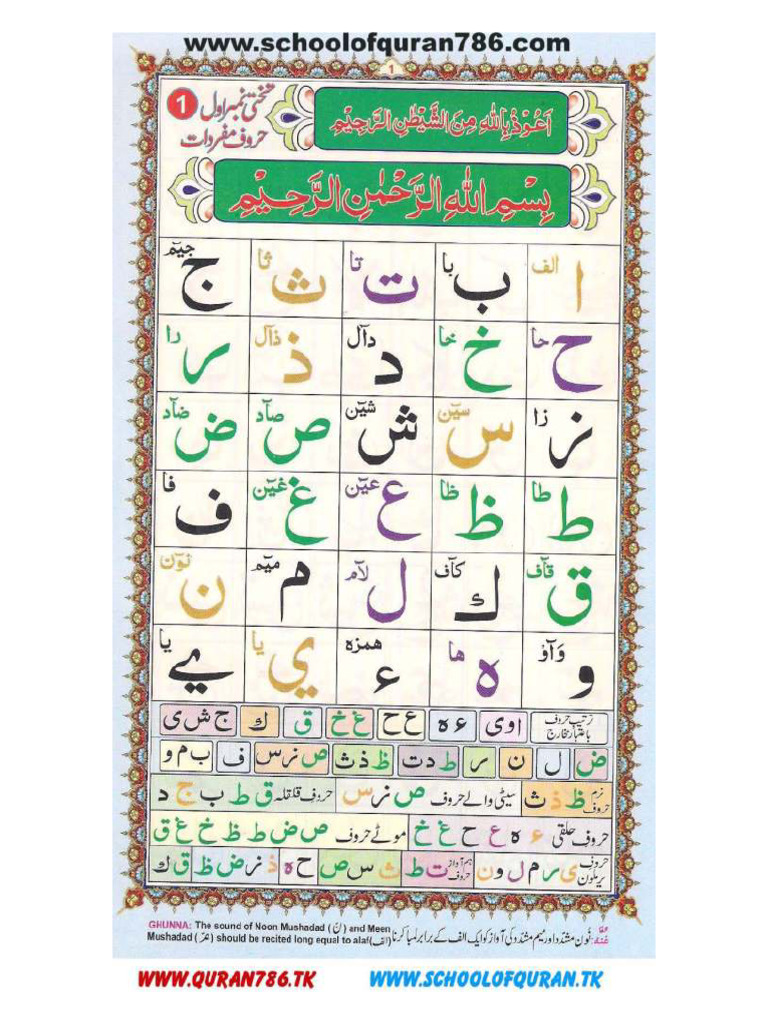 www.schoolofquran786.com
1
1 تختی نمبر اول
حروف مفردات
اَعُوْذُ بِاللّٰهِ مِنَ الشَّيْطٰنِ الرَّجِيْمِ
بِسْمِ اللّٰهِ الرَّحْمٰنِ الرَّحِيْمِ
ا الف ب با ت تا ث ثا ج جیٓم
ح حا خ خا د دآل ذ ذآل ر را
ز زا س سیٓن ش شیٓن ص صآد ض ضآد
ط طا ظ ظا ع عیٓن غ غیٓن ف فا
ق قآف ك کآف ل لآم م میٓم ن نوٓن
و وَآوْ ہ ھا ء ھمزہ ي یا ے یا
ترتیب حروف باعتبار مخارج اوی ء ہ ع ح غ خ ق ك ج ش ی
ض ل ن ر ط د ت ظ ذ ث ص ز س ف ب م و
نرم حروف ظ ذ ث سیٹی والے حروف ص ز س حروف قلقلہ ق ط ب ج د
حروف حلقی ء ہ ع ح غ خ موٹے حروف ص ض ط ظ خ غ ق
حروف یرملون ی ر م ل و ن ہم آواز حروف ت ط ث س ص ح ہ ذ ز ض ظ ق ك
GHUNNA: The sound of Noon Mushadad (نّ) and Meen
Mushadad (مّ) should be recited long equal to alaf (الف)
غُنّہ: نُون مشدّد اور میم مشدّد کی آواز کو ایک الف کے برابر لمبا کرنا
WWW.QURAN786.TK WWW.SCHOOLOFQURAN.TK